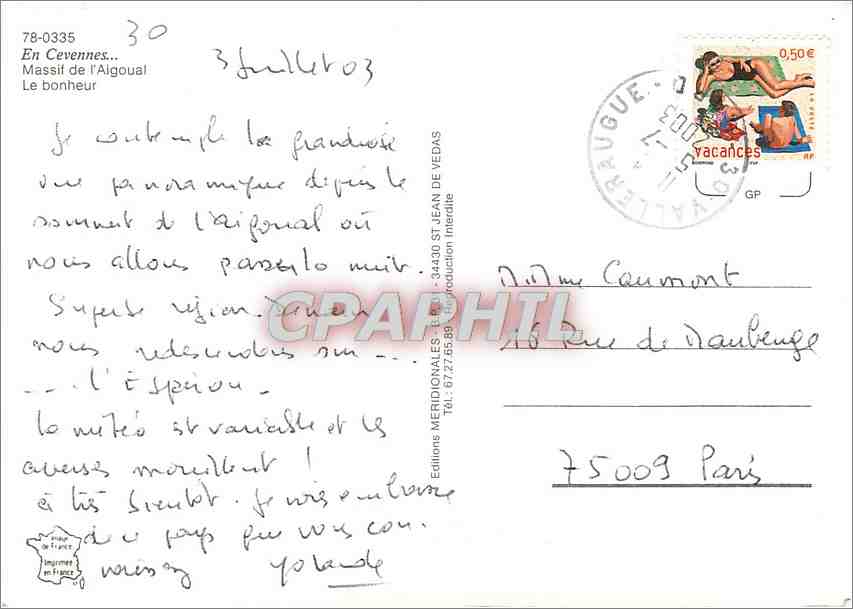 78-0335
En Cevennes...
Massif de l'Aigoual
Le bonheur
30
3 Juillet 03
Je contemple la grandiose
vue panoramique depuis le
sommet de l'aigoual où
nous allons passer la nuit.
Superbe région. Demain
nous redescendons sur ...
... l'Espérou.
La météo est variable et les
averses mouillent !
à très bientôt. Je vous embrasse
de ce pays que vous con.
naissez Yolande
Image
de France
Imprimée
en France
Editions MERIDIONALES - - 34430 ST JEAN DE VEDAS
Tél.: 67.27.65.89 - Reproduction Interdite
CPAPHIL
0,50 €
LA POSTE
vacances
RF
30 VALLERAUGUE
5-7
GP
M. Mme Caumont
16 Rue de Maubeuge
75009 Paris